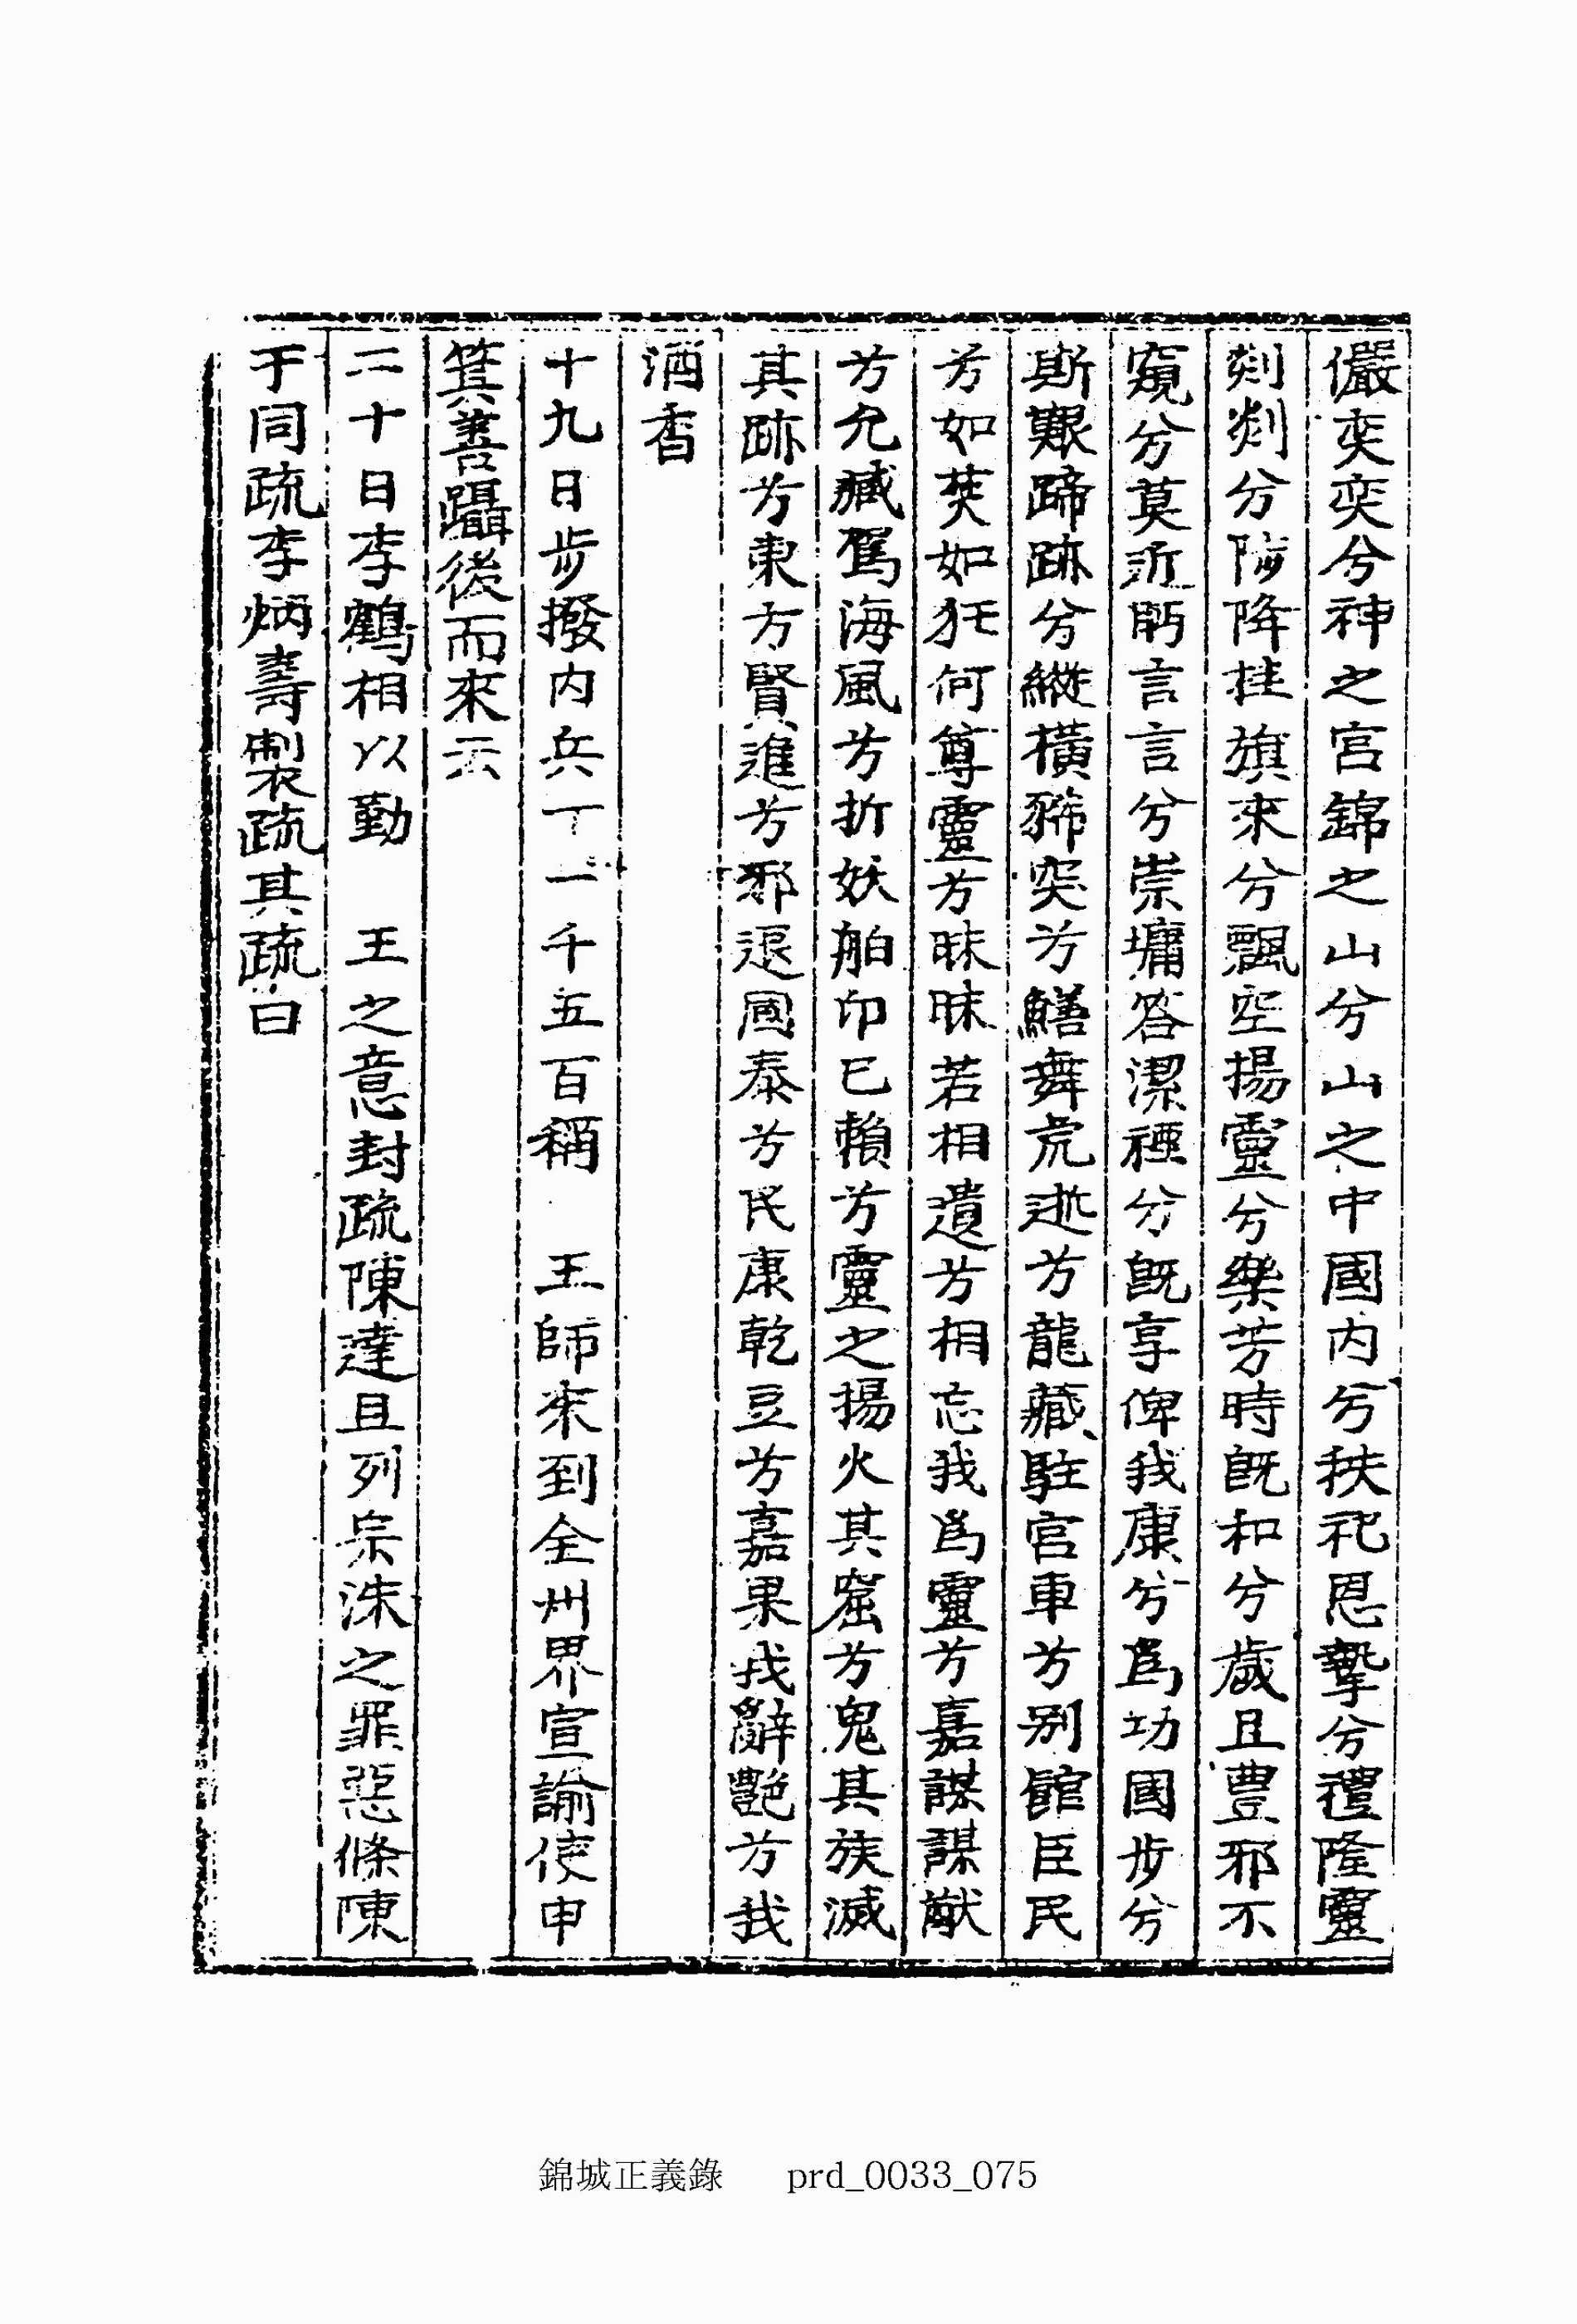 儼奕奕兮神之宮錦之山兮山之中國內兮秩祀恩摯兮禮隆靈
剡剡兮陟降桂旗來兮飄空揚靈兮樂芳時旣和兮歲且豊邪不
窺兮莫近眄言言兮崇墉答潔禋兮旣享俾我康兮爲功國步兮
斯艱蹄跡兮縱橫豨突兮鱔舞虎逝兮龍藏駐官車兮別館臣民
兮如焚如狂何尊靈兮昧昧若相遺兮相忘我爲靈兮嘉謀謀猷
兮允臧駕海風兮折妖舶印已賴兮靈之揚火其窟兮鬼其族滅
其跡兮東方賢進兮邪退國泰兮民康乾豆兮嘉果我辭艶兮我
酒香
十九日步撥內兵丁一千五百稱　王師來到全州界宣諭使申
箕善躡後而來云
二十日李鶴相以勤　王之意封疏陳達且列宗洙之罪惡條陳
于同疏李炳壽製疏其疏曰
錦城正義錄　prd_0033_075